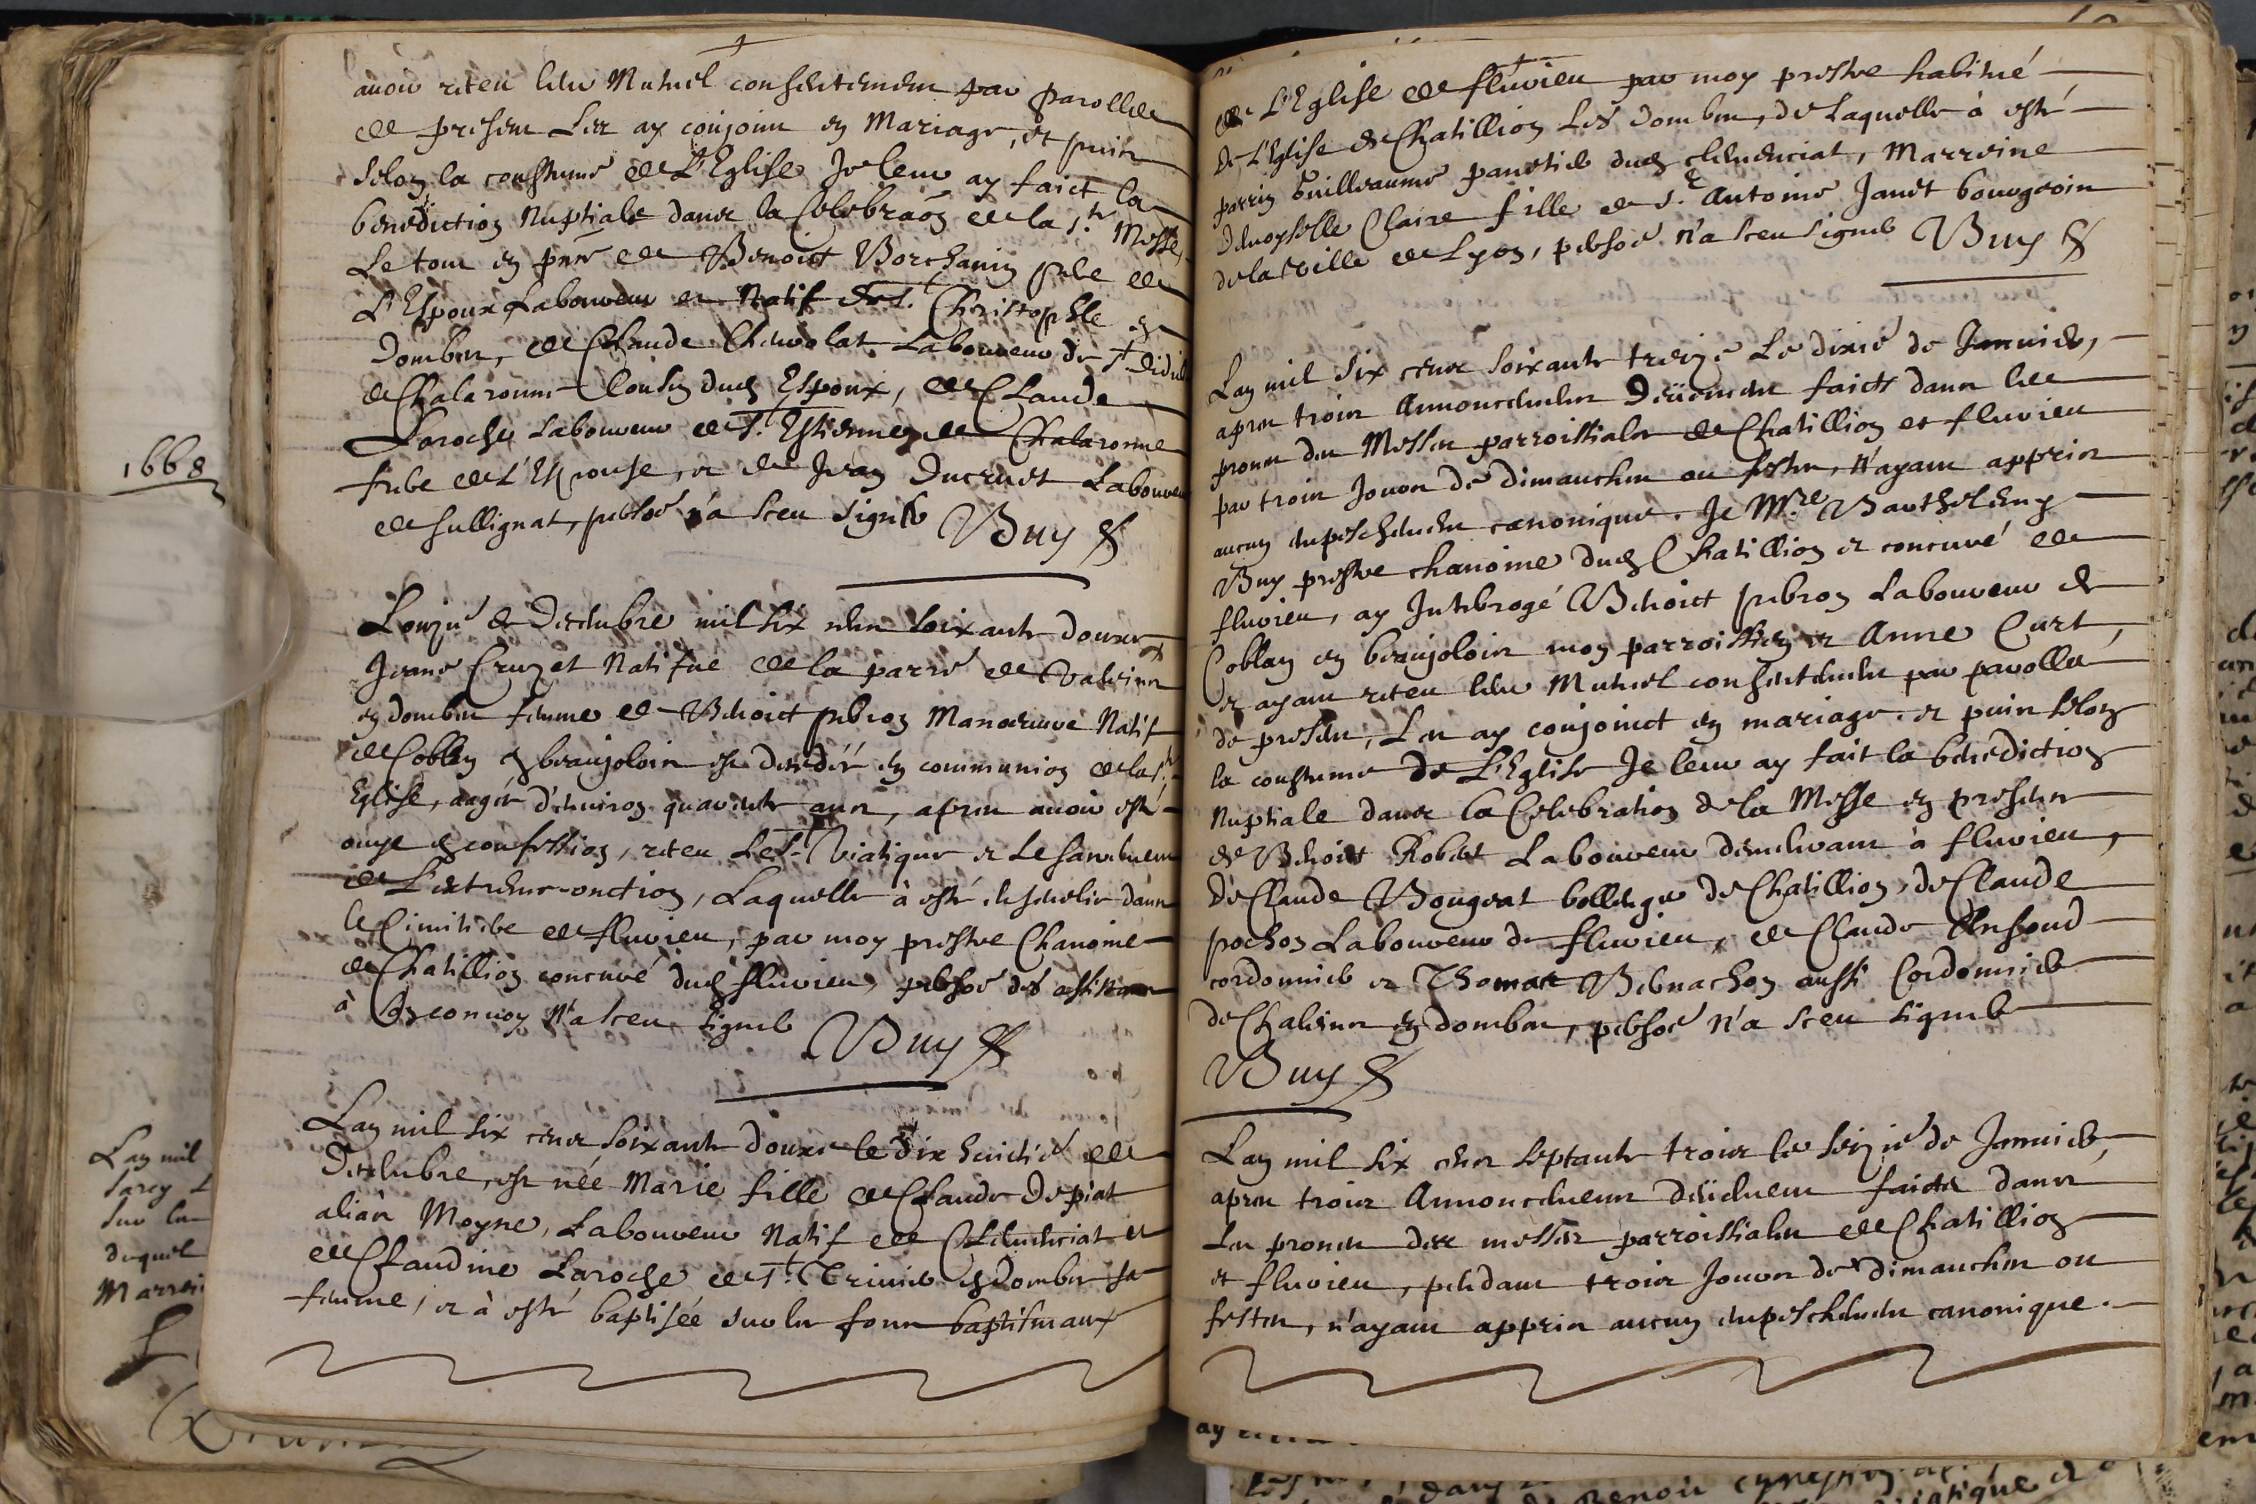 avoir receu leur Mutuel consentement par parolles
de present Les ay conjoint en Mariage, et puis
selon la coustume de L'Eglise Je leur ay faict la
benediction Nuptiale dans la Celebraõn de la Ste Messe,
Le tout en pñce de Benoict Borchanin pere de
L'Espoux Laboureur et Natif de St. Christophle en
Dombes, de Claude Chevolat Laboureur de St Didier
de Chalaronne Cousin dud Espoux, de Claude
Laroche Laboureur de St. Estienne de Chalaronne
frere de L'Espouse, et de Jean Ducruet Laboureur
de sullignat, persoe n'a sceu signer Buy
1668
L'onzie de Decembre mil six cens soixante douze
Jeane Cruzet Natifue de la parre de Valeins
en dombes femme de Benoict perron Manoeuvre Natif
de Coblen en beaujolois est decedée en communion de la Ste
Eglise, aagée d'environ quarente ans, apres avoir esté
ouye en confession, receu Le St. Viatique et Le sacrement
de L'extreme-onction, Laquelle à esté ensevelie dans
le Cimitiere de fluvieu, par moy prestre Chanoine
de Chatillion concuré dud fluvieu, persoe des assistans
à son convoy n'a sceu signer Buy
L'an mil six cens soixante douze le dix huictie de
Decembre, est née Marie fille de Claude Depiat
aliàs Moyne, Laboureur Natif de Clemenciat et
de Claudine Laroche de St. Trivier en Dombes sa
femme, et à esté baptisée sur les fons baptismaux
de L'Eglise de fluvieu par moy prestre habitué
de L'Eglise de Chatillion Les Dombes, de Laquelle à esté
parrin Guilleaume panetier dud clemenciat, Marreine
Damoyselle Claire fille de Sr. Antoine Janet bourgeois
de la Ville de Lyon, persoe n'a sceu signer Buy
L'an mil six cens soixante treize Le dixie de Janvier,
apres trois Annoncemens Deüement faicts dans les
prones des Messes parroissiales de Chatillion et fluvieu
par trois Jours de dimanches ou festes, n'ayant appris
aucun empeschement canonique. Je Mre Barthelemy
Buy prestre chanoine dud Chatillion et concuré de
fluvieu, ay Interrogé Benoict perron Laboureur de
Coblan en beaujolois mon parroissien et Anne Curt,
et ayant receu leur Mutuel consentement par parolles
de present, Les ay conjoinct en mariage. et puis selon
la coustume de L'Eglise Je leur ay fait la benediction
Nuptiale dans la Celebration de la Messe en presence
de Benoict Robert Laboureur demeurant à fluvieu,
de Claude Bougeat bollenger de Chatillion, de Claude
pochon Laboureur de fluvieu, de Claude
cordonnier et Thomas Bernachon aussi Cordonnier
de Chaleins en dombes, persoe n'a sceu signer
Buy
L'an mil six cens septante trois le seizie de Janvier,
apres trois Annoncemens deüement faicts dans
Les prones des messes parroissiales de Chatillion
et fluvieu, pendant trois Jours de dimanches ou
festes, n'ayant appris aucun empeschement canonique.
L'an mil
duquel